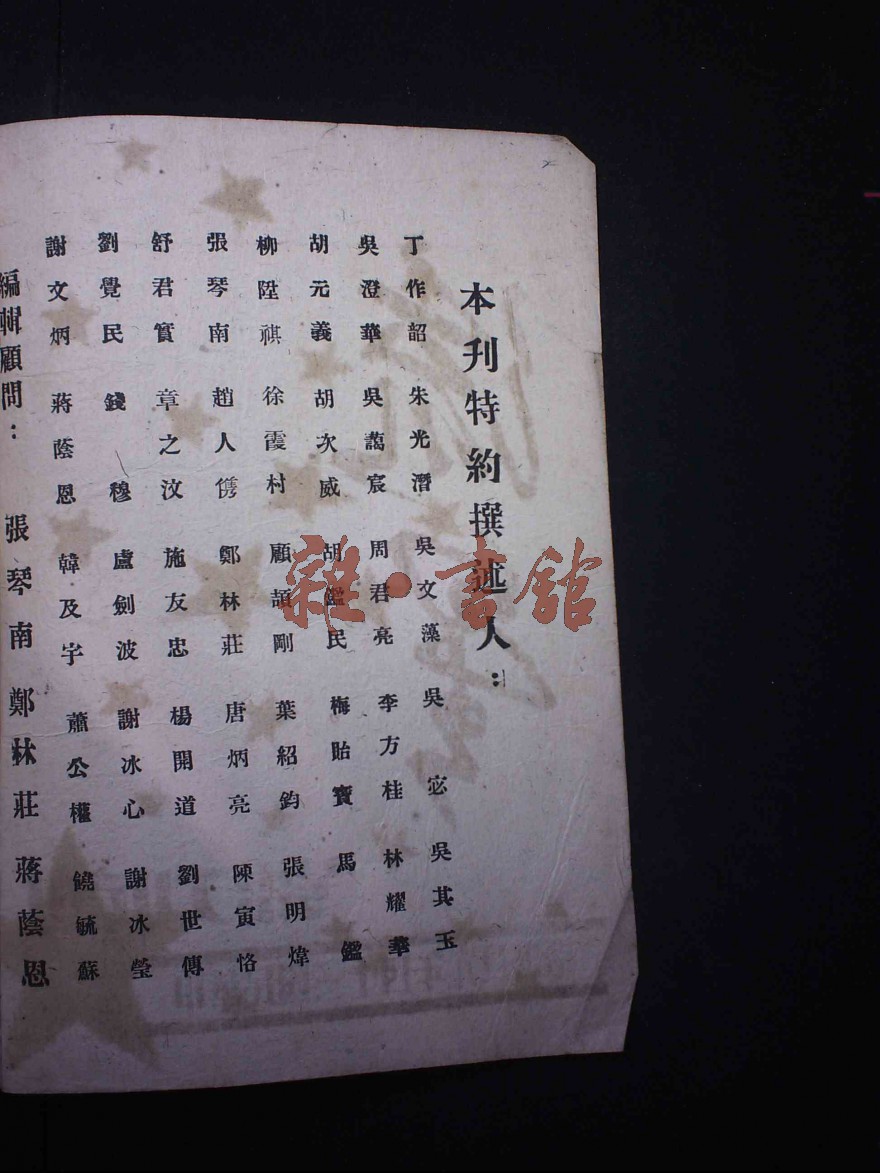 本刊特約撰述人：
丁作韶 朱光潛 吳文藻 吳宓 吳其玉
吳澄華 吳藹宸 周君亮 李方桂 林耀華
胡元義 胡次威 胡鑑民 梅貽寶 馬鑑
柳陞祺 徐霞村 顧頡剛 葉紹鈞 張明煒
張琴南 趙人儁 鄭林莊 唐炳亮 陳寅恪
舒君實 章之汶 施友忠 楊開道 劉世傳
劉覺民 錢穆 盧劍波 謝冰心 謝冰瑩
謝文炳 蔣蔭恩 韓及宇 蕭公權 饒毓蘇
編輯顧問： 張琴南 鄭林莊 蔣蔭恩
雜·書館